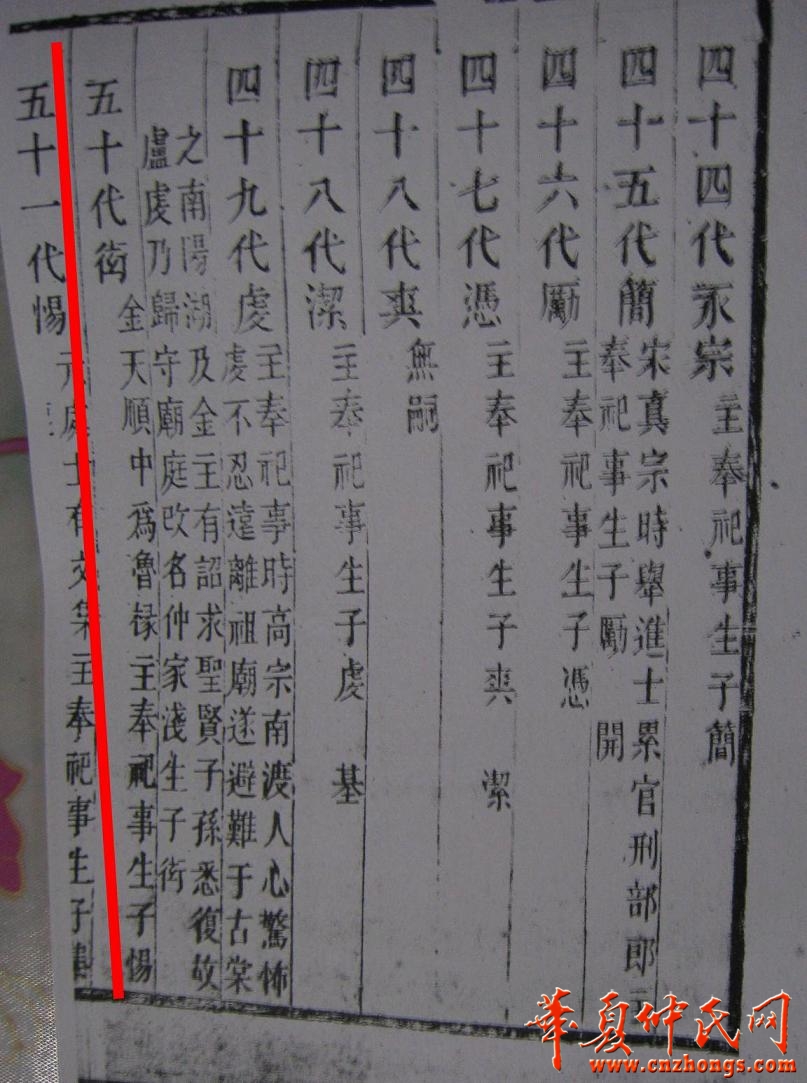 四十四代永宗 主奉祀事生子簡
四十五代簡 宋真宗時舉進士累官刑部郎
奉祀事生子勵 開
四十六代勵 主奉祀事生子憑
四十七代憑 主奉祀事生子爽 潔
四十八代爽 無嗣
四十八代潔 主奉祀事生子虔 基
四十九代虔 主奉祀事時高宗南渡人心驚怖
虔不忍遠離祖廟遂避難于古棠
之南陽湖及金主有詔求聖賢子孫悉復故
廬虔乃歸守廟庭改名仲家淺生子衖
五十代衖 金天順中為魯祿主奉祀事生子惕
五十一代惕 元處士有文集主奉祀事生子
華夏仲氏网
www.cnzhongs.com